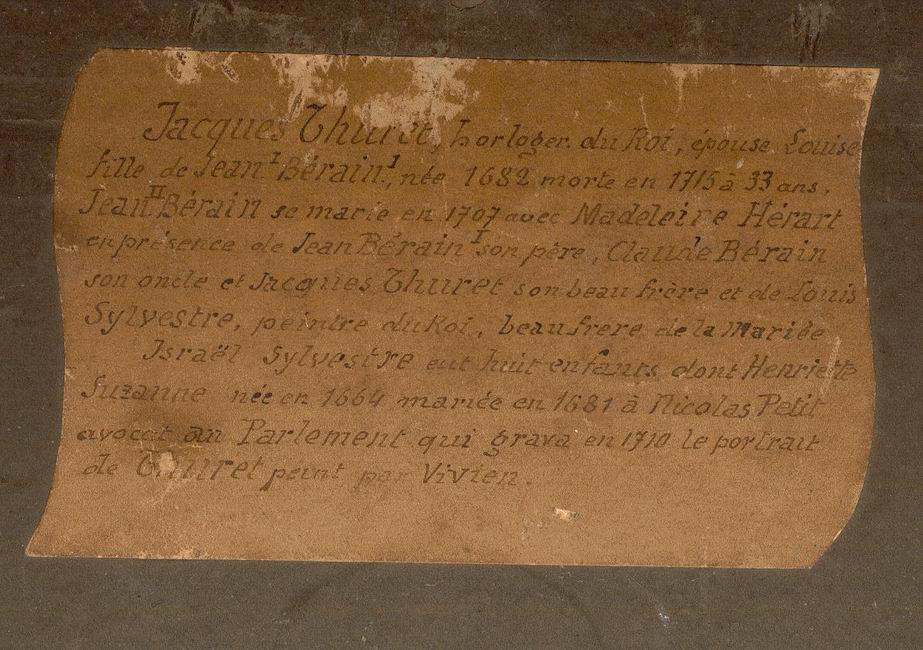 Jacques Thuret, horloger du Roi, épouse Louise
fille de Jean I Bérain I, née 1682 morte en 1715 à 33 ans.
Jean II Bérain se marie en 1707 avec Madeleine Hérart
en présence de Jean Bérain I son père, Claude Bérain
son oncle et Jacques Thuret son beau frère et de Louis
Sylvestre, peintre du Roi, beau frere de la Mariée
Israël Sylvestre eut huit enfants dont Henriette
Suzanne née en 1664 mariée en 1681 à Nicolas Petit
avocat au Parlement qui grava en 1710 le portrait
de Thuret peint par Vivien.